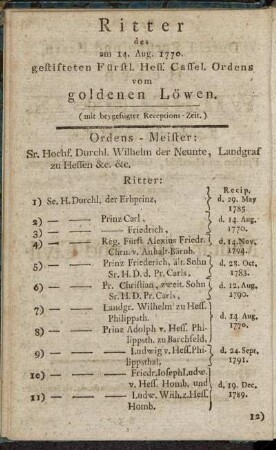 Ritter
des
am 14. Aug. 1770.
gestifteten Fürstl. Hess. Cassel. Ordens
vom
goldenen Löwen.
(mit beygefügter Receptions-Zeit.)
Ordens-Meister:
Sr. Hochf. Durchl. Wilhelm der Neunte, Landgraf
zu Hessen &c. &c.
Ritter:
Recip.
1) Se. H. Durchl. der Erbprinz, d. 29. May
1785.
2) — — Prinz Carl, d. 14. Aug.
3) — — Friedrich, 1770.
4) — — Reg. Fürst Alexius Friedr. d. 14. Nov.
Chrn. v. Anhalt-Bärnb. 1794.
5) — — Prinz Friederich, ält. Sohn d. 28. Oct.
Sr. H. D. d. Pr. Carls, 1783.
6) — — Pr. Christian, zweit. Sohn d. 12. Aug.
Sr. H. D. d. Pr. Carls, 1790.
7) — — Landgr. Wilhelm zu Hess.
Philippsth. d. 14. Aug.
8) — — Prinz Adolph v. Hess. Phi- 1770.
lippsth. zu Barchfeld,
9) — — Ludwig v. Hess. Phi- d. 24. Sept.
lippsthal, 1791.
10) — — Friedr. Joseph Ludw.
v. Hess. Homb. und d. 19. Dec.
11) — — Ludw. Wilh. z. Hess. 1789.
Homb.
12)